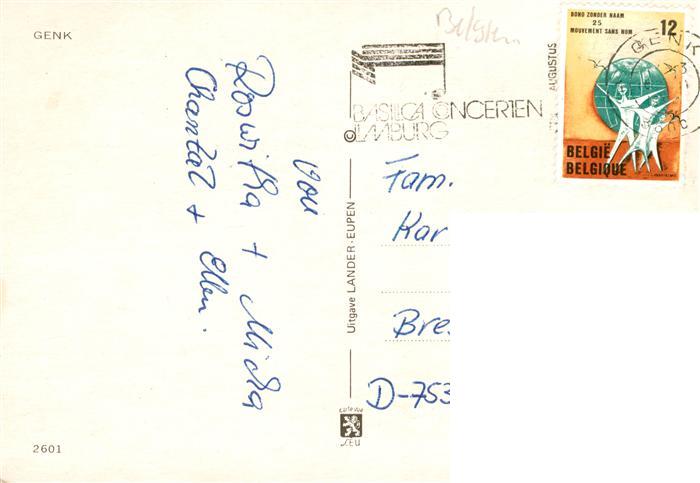 GENK
Belgien
BOND ZONDER NAAM
25
MOUVEMENT SANS NOM
12
BELGIË
BELGIQUE
GENK
AUGUSTUS
BASILICA CONCERTEN
LIMBURG
von
Roswitha + Micha
Chantal + Ellen.
Uitgave LANDER - EUPEN
Fam.
Kar
Bre
D-753
carte vue
LEU
2601